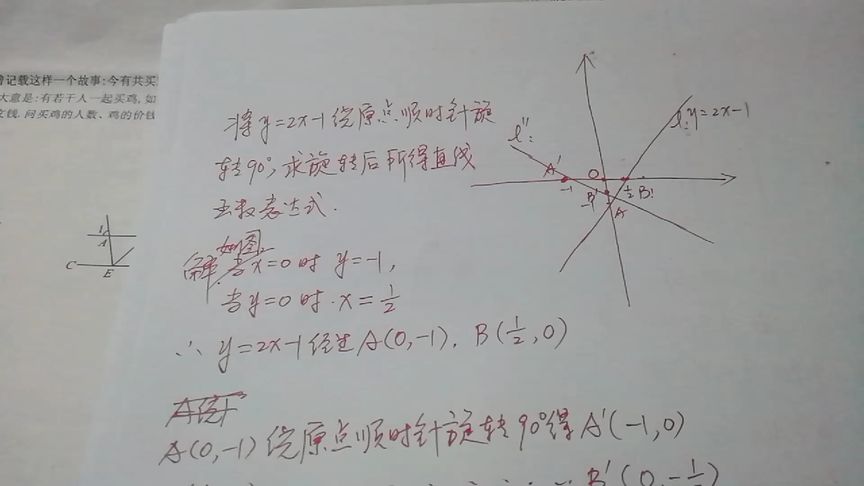 曾记载这样一个故事:今有共买
大意是:有若干人一起买鸡,如
文钱.问买鸡的人数、鸡的价钱
将y=2x-1绕原点顺时针旋
转90°,求旋转后所得直线
函数表达式.
解:如图
当x=0时 y=-1,
当y=0时.x=1/2
∴ y=2x-1经过A(0,-1).B(1/2,0)
A(0,-1)绕原点顺时针旋转90°得A'(-1,0)
B'(0,-1/2)
l":
l:y=2x-1
A'
-1
O
1/2
B
B'
-1
A
1
A
C
E